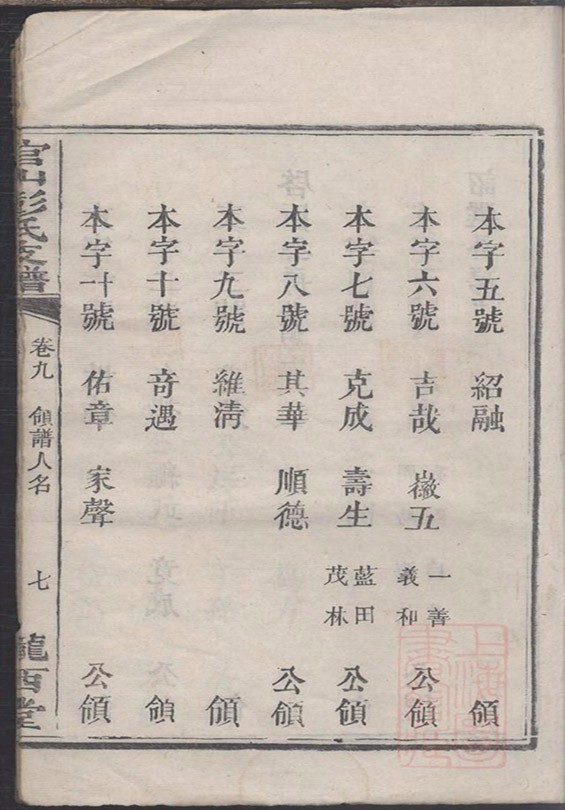 本字五號 紹融 領
本字六號 吉哉 徽五 一善 義和 公領
本字七號 克成 壽生 藍田 茂林 公領
本字八號 其華 順德 公領
本字九號 維清 領
本字十號 奇遇 領
本字十一號 佑章 家聲 公領
官山彭氏支譜 卷九 領譜人名 七 隴西堂